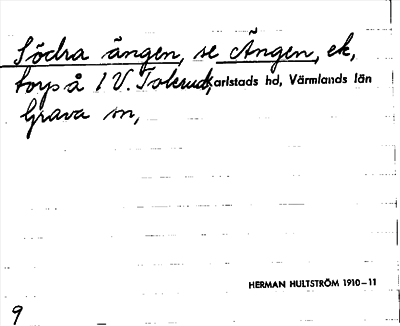 Södra ängen, se Ängen, ek,
torp å 1 V. Tolerud, Karlstads hd, Värmlands län
Grava sn,
HERMAN HULTSTRÖM 1910–11
9